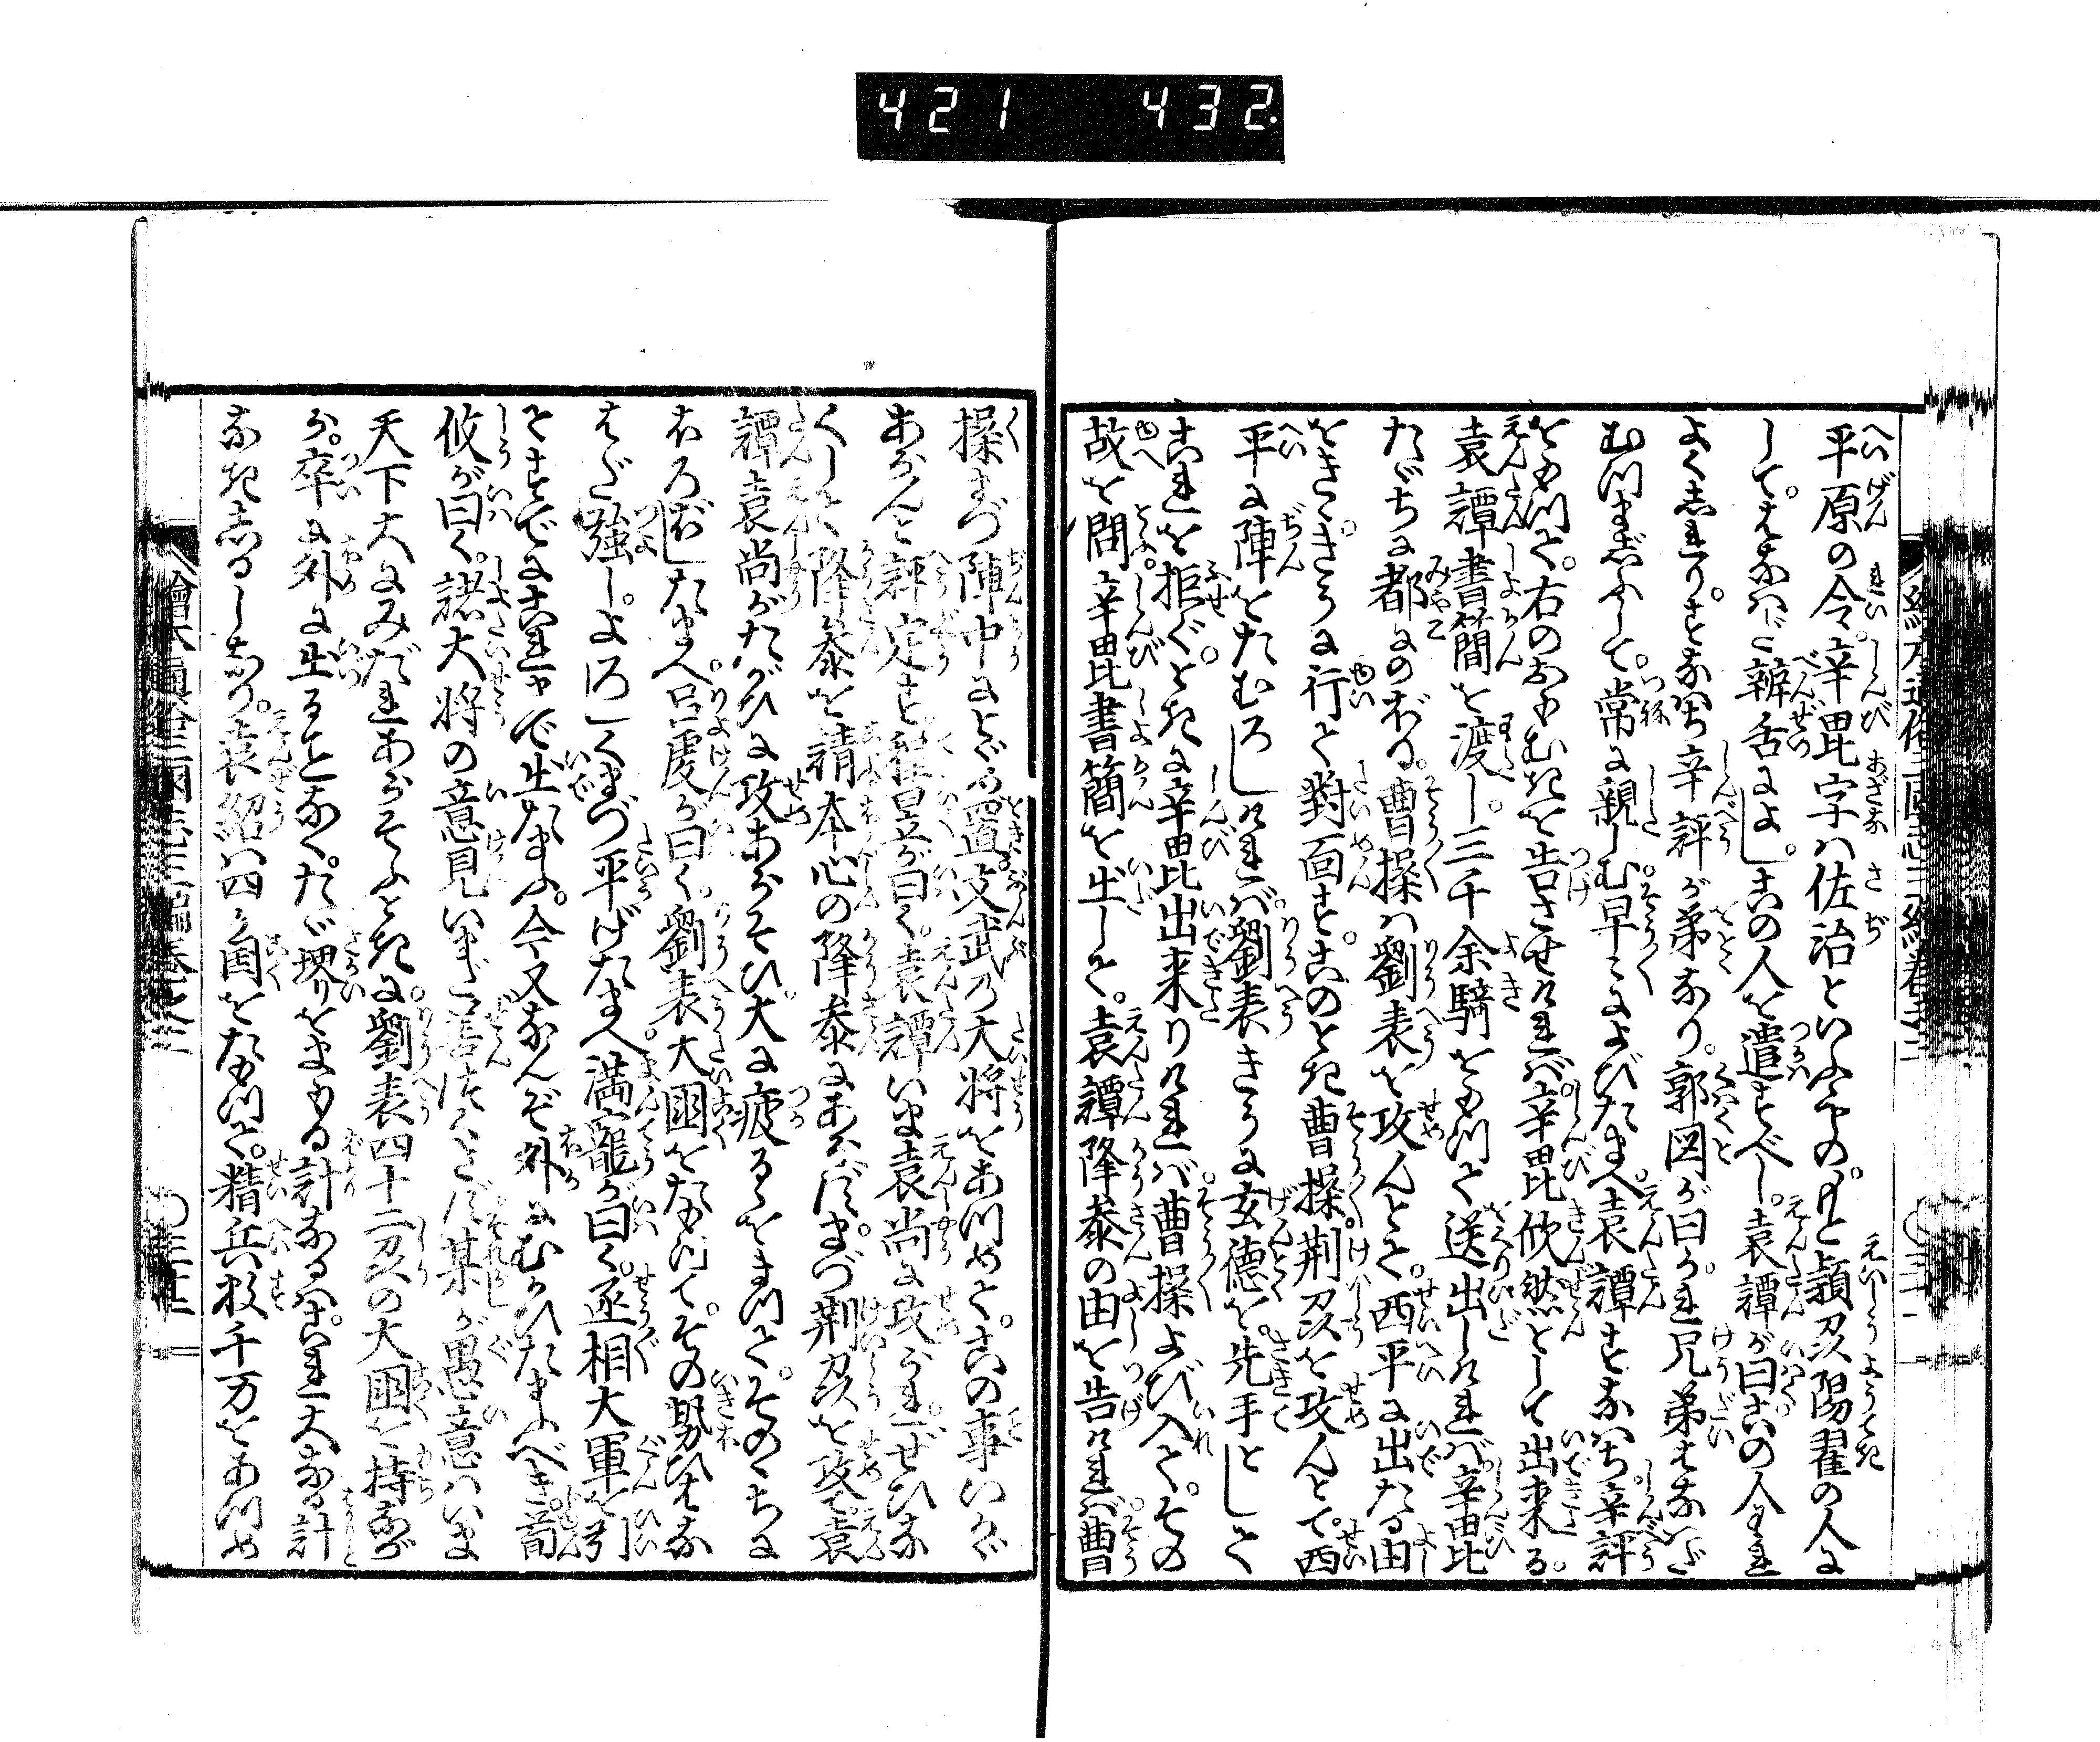 421 432
平原の令。辛毘字ハ佐治といふもの。もと頴州陽翟の人に
して。はなはだ辨舌によし。この人を遣すべし。袁譚が曰この人われ
よくしれり。すなハち辛評が弟なり。郭図が曰かれ兄弟はなハだ
むつまじふして。常に親しむ早々によびたまへ袁譚すなハち辛評
をもつて。右のおもむきを告させければ。辛毘忻然として出来る。
袁譚書簡を渡し。三千余騎をもつて送出しければ。辛毘
たゞちに都にのぼる。曹操ハ劉表を攻んとて。西平に出たる由
をきゝ。きうに行て對面す。このとき曹操。荆州を攻んとて。西
平に陣をたむろしければ。劉表きうに玄德を。先手として
これを拒ぐ。ときに辛毘出来りければ。曹操よび入て。その
故を問。辛毘書簡を出して。袁譚降泰の由を告ければ。曹
操まづ陣中にとゞめ置文武乃大将をあつめて。この事いかゞ
あらんと評定す程昱が曰く。袁譚いま袁尚に攻られ。ぜひな
くして降泰を請本心の降泰にあらず。まづ荆州を攻て。袁
譚袁尚がたがひに攻あらそひ。大に疲るゝをまつて。そのゝちに
ほろぼしたまへ。呂虔が曰く。劉表大国をたもつて。その勢ひはな
はだ強し。よろしくまづ平げたまへ。満寵が曰く。丞相大軍を引
てすでにこれまで出たまふ。今又なんぞ外にむかひたまふべき。荀
攸が曰く。諸大将の意見いまだ善はくさず某が愚意ハいま
天下大にみだれあらそふときに。劉表四十二州の大国を持ちなが
ら。卒に外に出ることなく。たゞ堺リをまもる計なるハ。これ大なる計
なきしるしなり。袁紹ハ四ケ国をたもつて。精兵数千万をあつめ
繪本通俗三国志三編巻之三